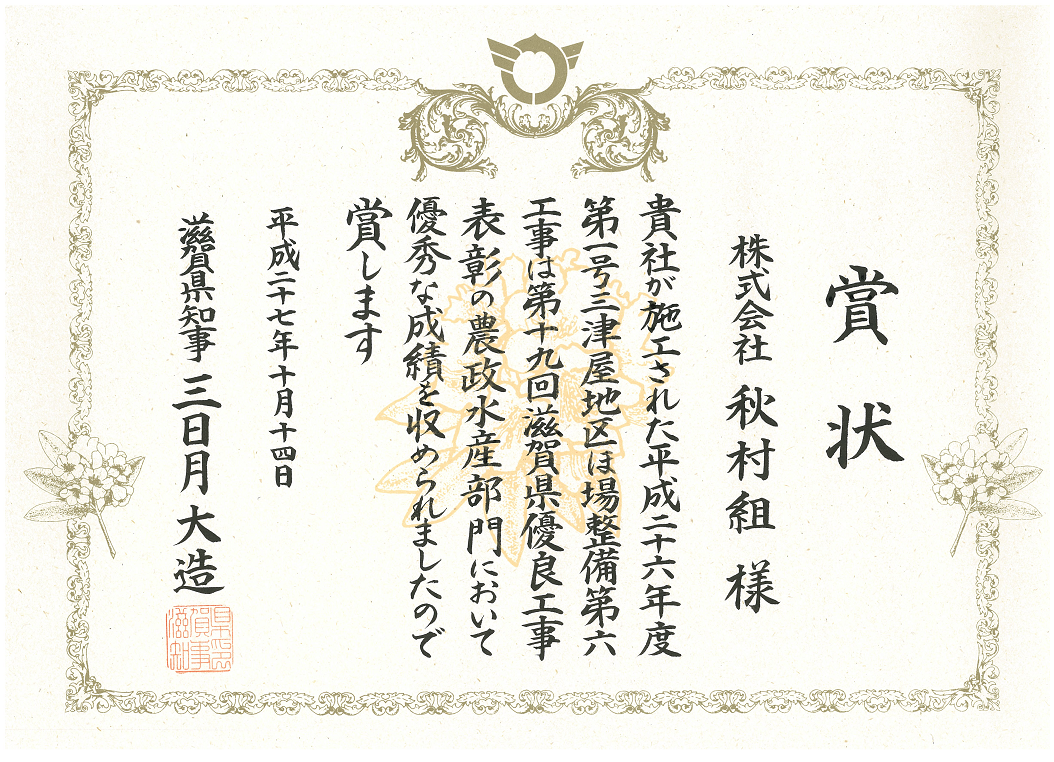 賞状
株式会社 秋村組 様
貴社が施工された平成二十六年度
第一号三津屋地区ほ場整備第六
工事は第十九回滋賀県優良工事
表彰の農政水産部門において
優秀な成績を収められましたので
賞します
平成二十七年十月十四日
滋賀県知事 三日月大造